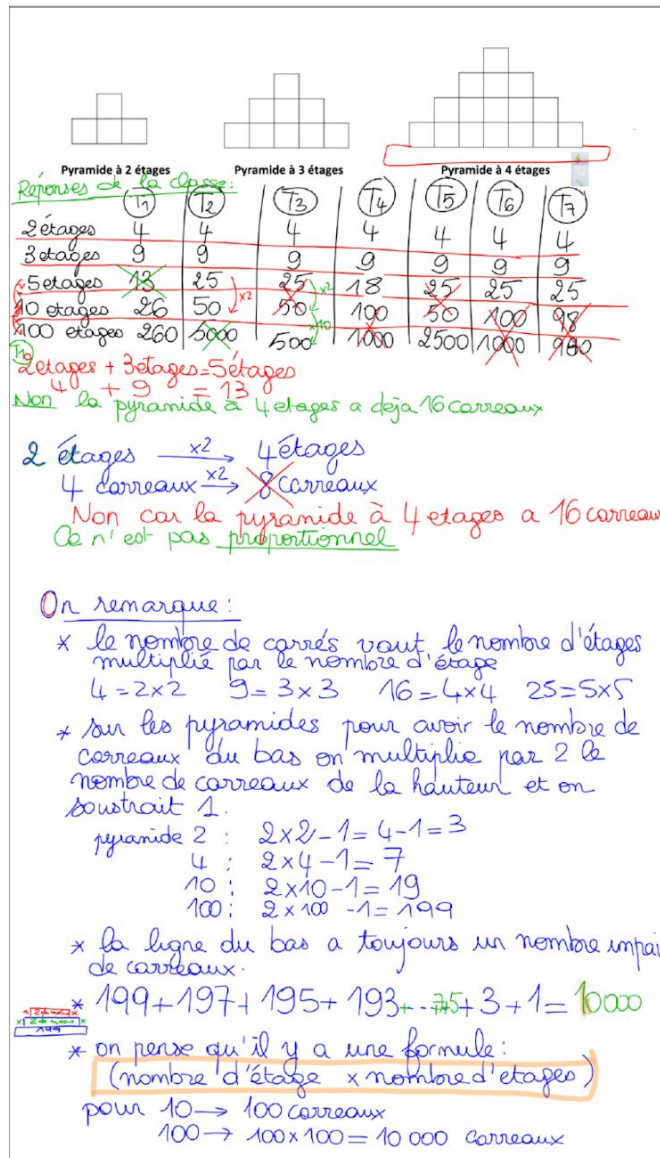 Pyramide à 2 étages Pyramide à 3 étages Pyramide à 4 étages
Réponses de la classe:
T1 T2 T3 T4 T5 T6 T7
2 étages 4 4 4 4 4 4 4
3 etages 9 9 9 9 9 9 9
5 etages 13 25 25 18 25 25 25
10 etages 26 50 50 100 50 100 98
100 etages 260 5000 500 1000 2500 1000 980
x2 x2 x10
T1
2 etages + 3 etages = 5 étages
4 + 9 = 13
Non la pyramide à 4 etages a déjà 16 carreaux
2 étages x2 4 étages
4 carreaux x2 8 carreaux
Non car la pyramide à 4 etages a 16 carreau
Ce n'est pas proportionnel
On remarque:
* le nombre de carrés vaut le nombre d'étages
multiplié par le nombre d'étage
4 = 2x2 9 = 3x3 16 = 4x4 25 = 5x5
* sur les pyramides pour avoir le nombre de
carreaux du bas on multiplie par 2 le
nombre de carreaux de la hauteur et on
soustrait 1.
pyramide 2 : 2x2-1=4-1=3
4 : 2x4-1=7
10 : 2x10-1=19
100 : 2x100-1=199
* la ligne du bas a toujours un nombre impai
de carreaux.
* 199+197+195+193+...+5+3+1=10000
199
* on pense qu'il y a une formule:
(nombre d'étage x nombre d'etages)
pour 10 → 100 carreaux
100 → 100x100 = 10 000 carreaux